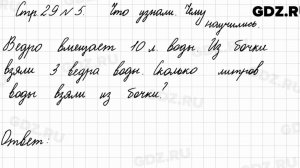 GDZ.RU
Стр. 29 № 5. Что узнали. Чему
научились
Ведро вмещает 10 л воды. Из бочки
взяли 3 ведра воды. Сколько литров
воды взяли из бочки?
Ответ: